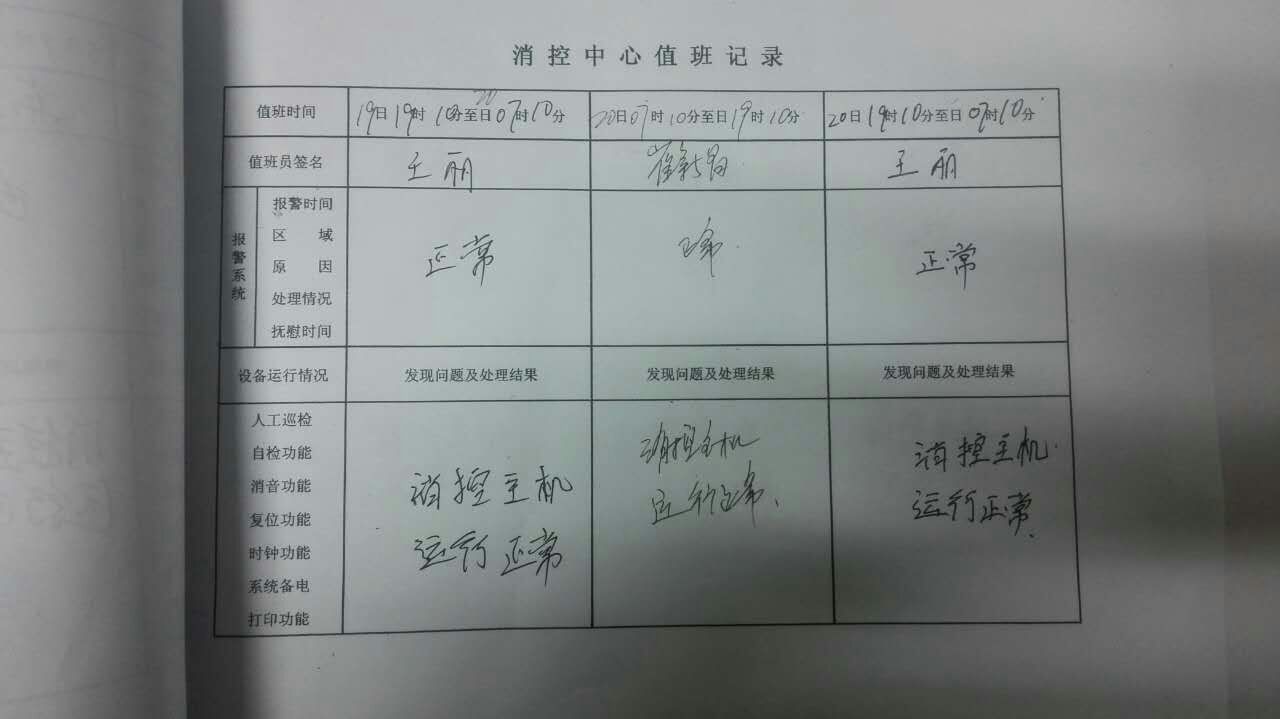 消控中心值班记录
值班时间 19日19时10分至20日07时10分 20日07时10分至日19时10分 20日19时10分至日07时10分
值班员签名 王丽 崔新昌 王丽
报警系统
报警时间
区域
原因 正常 正常 正常
处理情况
抚慰时间
设备运行情况 发现问题及处理结果 发现问题及处理结果 发现问题及处理结果
人工巡检
自检功能
消音功能
复位功能
时钟功能
系统备电
打印功能
消控主机
运行正常
消控主机
运行正常、
消控主机
运行正常.